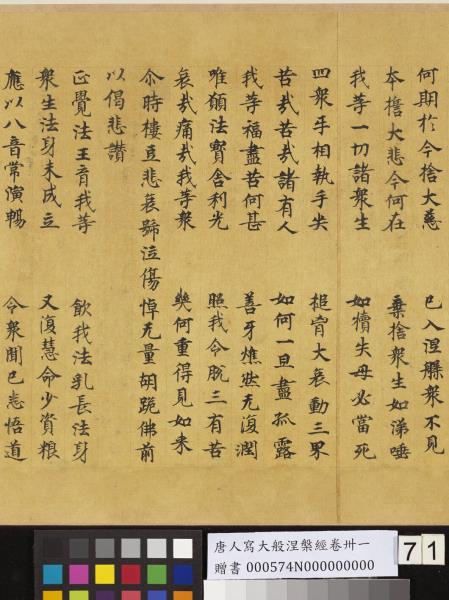 何期於今捨大慈　已入涅槃衆不見
本擔大悲今何在　棄捨衆生如涕唾
我等一切諸衆生　如犢失母必當死
四衆互相執手哭　搥胷大哀動三界
苦哉苦哉諸有人　如何一旦盡孤露
我等福盡苦何甚　善牙燋然无復潤
唯願法寶舍利光　照我令脫三有苦
哀哉痛哉我等衆　幾何重得見如來
尒時樓豆悲哀號泣傷悼无量胡跪佛前
以偈悲讚
正覺法王育我等　飲我法乳長法身
衆生法身未成立　又復慧命少資粮
應以八音常演暢　令衆聞已悉悟道
唐人寫大般涅槃經卷卅一
贈書 000574N000000000
71